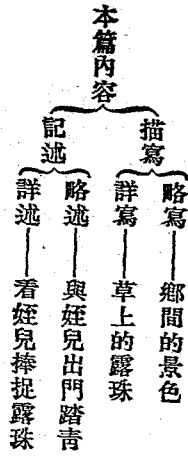 本篇內容
描寫
略寫——鄉間的景色
詳寫——草上的露珠
記述
略述——與姪兒出門踏青
詳述——看姪兒捧捉露珠